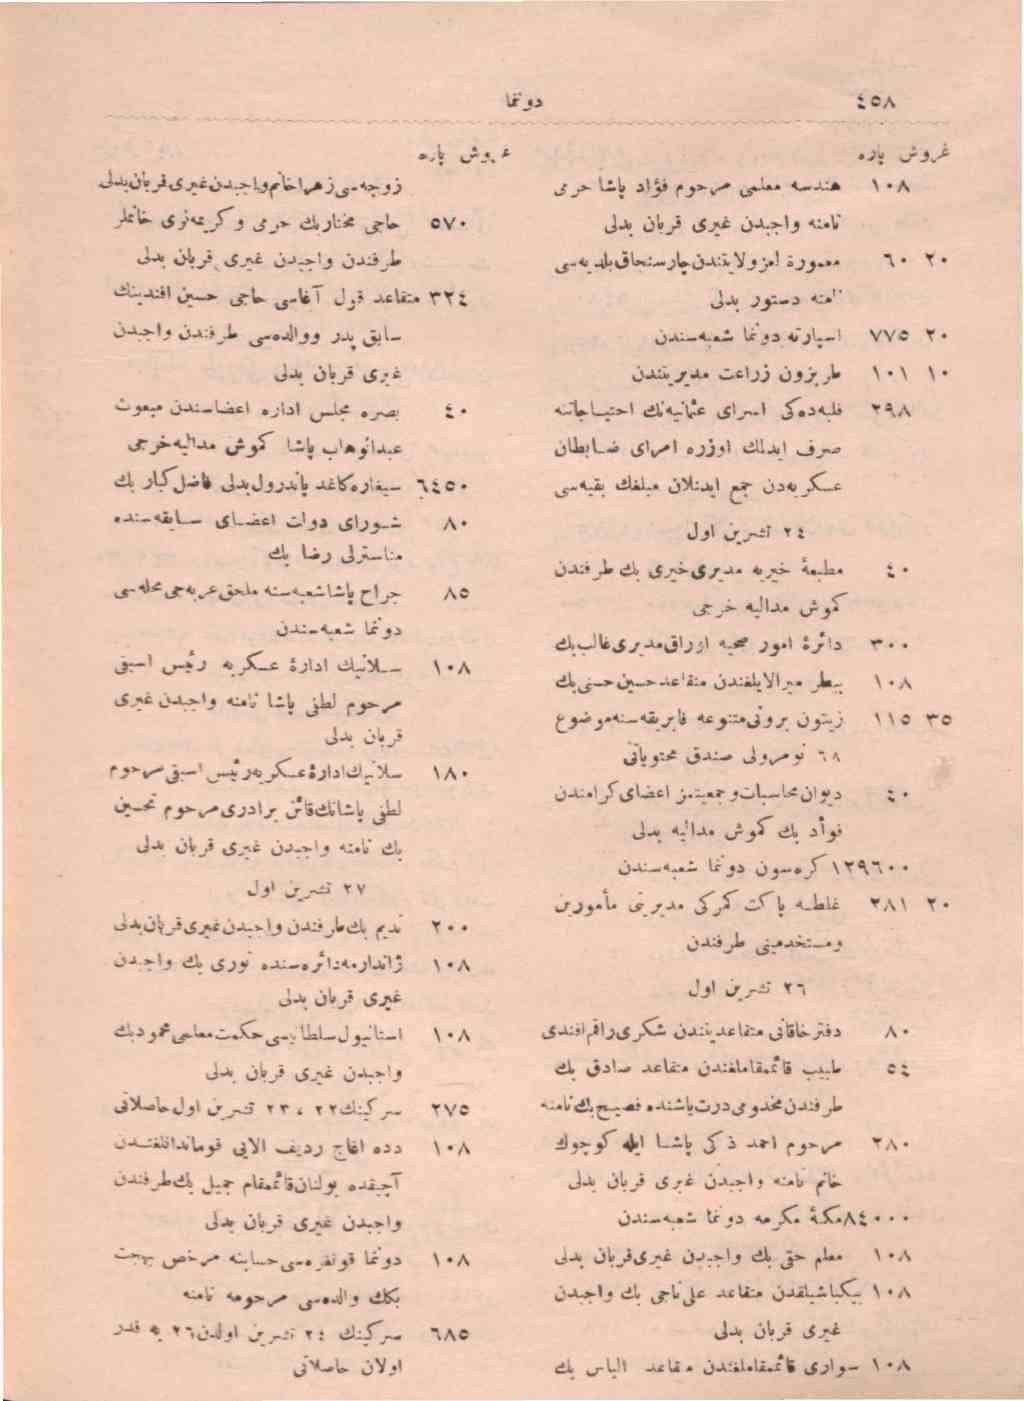 ٤٥٨
دونما
غروش پاره
١٠٨ هندسه معلمی مرحوم فؤاد پاشا حرمی
نامنه واجبدن غیری قربان بدلی
٢٠ ٦٠ معمورة العزیز ولایتندن چارسنجاق بلدیه‌سی
نامنه دستور بدلی
٢٠ ٧٧٥ اسپارته دونما شعبه‌سندن
١٠ ١٠١ طربزون زراعت مدیریتندن
٢٩٨ فلبه‌ده‌کی اسرای عثمانیه‌نك احتیاجاتنه
صرف ایدلمك اوزره امرای ضابطان
عسکریه‌دن جمع ایدیلان مبلغك بقیه‌سی
٢٤ تشرین اول
٤٠ مطبعۀ خیریه مدیری خیری بك طرفندن
کموش مدالیه خرجی
٣٠٠ دائرۀ امور صحیه اوراق مدیری غالب بك
١٠٨ بیطر میرالایلغندن متقاعد حسین حسنی بك
٣٥ ١١٥ زیتون برونی متنوعه فابریقه‌سنه موضوع
٦٨ نومرولی صندق محتویاتی
٤٠ دیوان محاسبات و جمعیتمز اعضای کرامندن
فوأد بك کموش مدالیه بدلی
١٢٩٦٠٠ کره‌سون دونما شعبه‌سندن
٢٠ ٢٨١ غلطه پاکت کمرکی مدیریتی مأمورین
ومستخدمینی طرفندن
٢٦ تشرین اول
٨٠ دفتر خاقانی متقاعدیتندن شکری راقم افندی
٥٤ طبیب قائممقاملغندن متقاعد صادق بك
طرفندن مخدومی درت یاشنده فصیح بك نامنه
٢٨٠ مرحوم احمد ذکی پاشا ایله کوچوك
خانم نامنه واجبدن غیری قربان بدلی
٨٤٠٠٠ مکۀ مکرمه دونما شعبه‌سندن
١٠٨ معلم حقی بك واجبدن غیری قربان بدلی
١٠٨ بیکباشیلقدن متقاعد علی ناجی بك واجبدن
غیری قربان بدلی
١٠٨ سواری قائممقاملغندن متقاعد الیاس بك
غروش پاره
زوجه‌سی زهرا خانم واجبدن غیری قربان بدلی
٥٧٠ حاجی مختار بك حرمی و کریمه‌لری خانملر
طرفندن واجبدن غیری قربان بدلی
٣٢٤ متقاعد قول آغاسی حاجی حسین افندینك
سابق پدر ووالده‌سی طرفندن واجبدن
غیری قربان بدلی
٤٠ بصره مجلس اداره اعضاسندن مبعوث
عبدالوهاب پاشا کموش مدالیه خرجی
٦٤٥٠ سیغاره کاغد پاندرول بدلی فاضل کبار بك
٨٠ شورای دولت اعضای سابقه‌سنده
مناسترلی رضا بك
٨٥ جراح پاشا شعبه‌سنه ملحق عربه‌جی محله‌سی
دونما شعبه‌سندن
١٠٨ سلانیك ادارۀ عسکریه رئیس اسبقی
مرحوم لطفی پاشا نامنه واجبدن غیری
قربان بدلی
١٨٠ سلانیك ادارۀ عسکریه رئیس اسبقی مرحوم
لطفی پاشانك قائن برادری مرحوم تحسین
بك نامنه واجبدن غیری قربان بدلی
٢٧ تشرین اول
٢٠٠ ندیم بك طرفندن واجبدن غیری قربان بدلی
١٠٨ ژاندارمه دائره‌سنده نوری بك واجبدن
غیری قربان بدلی
١٠٨ استانبول سلطانیسی حکمت معلمی محمود بك
واجبدن غیری قربان بدلی
٢٧٥ سرکینك ٢٢ ، ٢٣ تشرین اول حاصلاتی
١٠٨ دده اغاج ردیف الایی قومانداانلغندن
آچیقده بولنان قائممقام جمیل بك طرفندن
واجبدن غیری قربان بدلی
١٠٨ دونما قونفره‌سی حسابنه مرخص بهجت
بکك والده‌سی مرحومه نامنه
٦٨٥ سرکینك ٢٤ تشرین اولدن ٢٦ یه قدر
اولان حاصلاتی